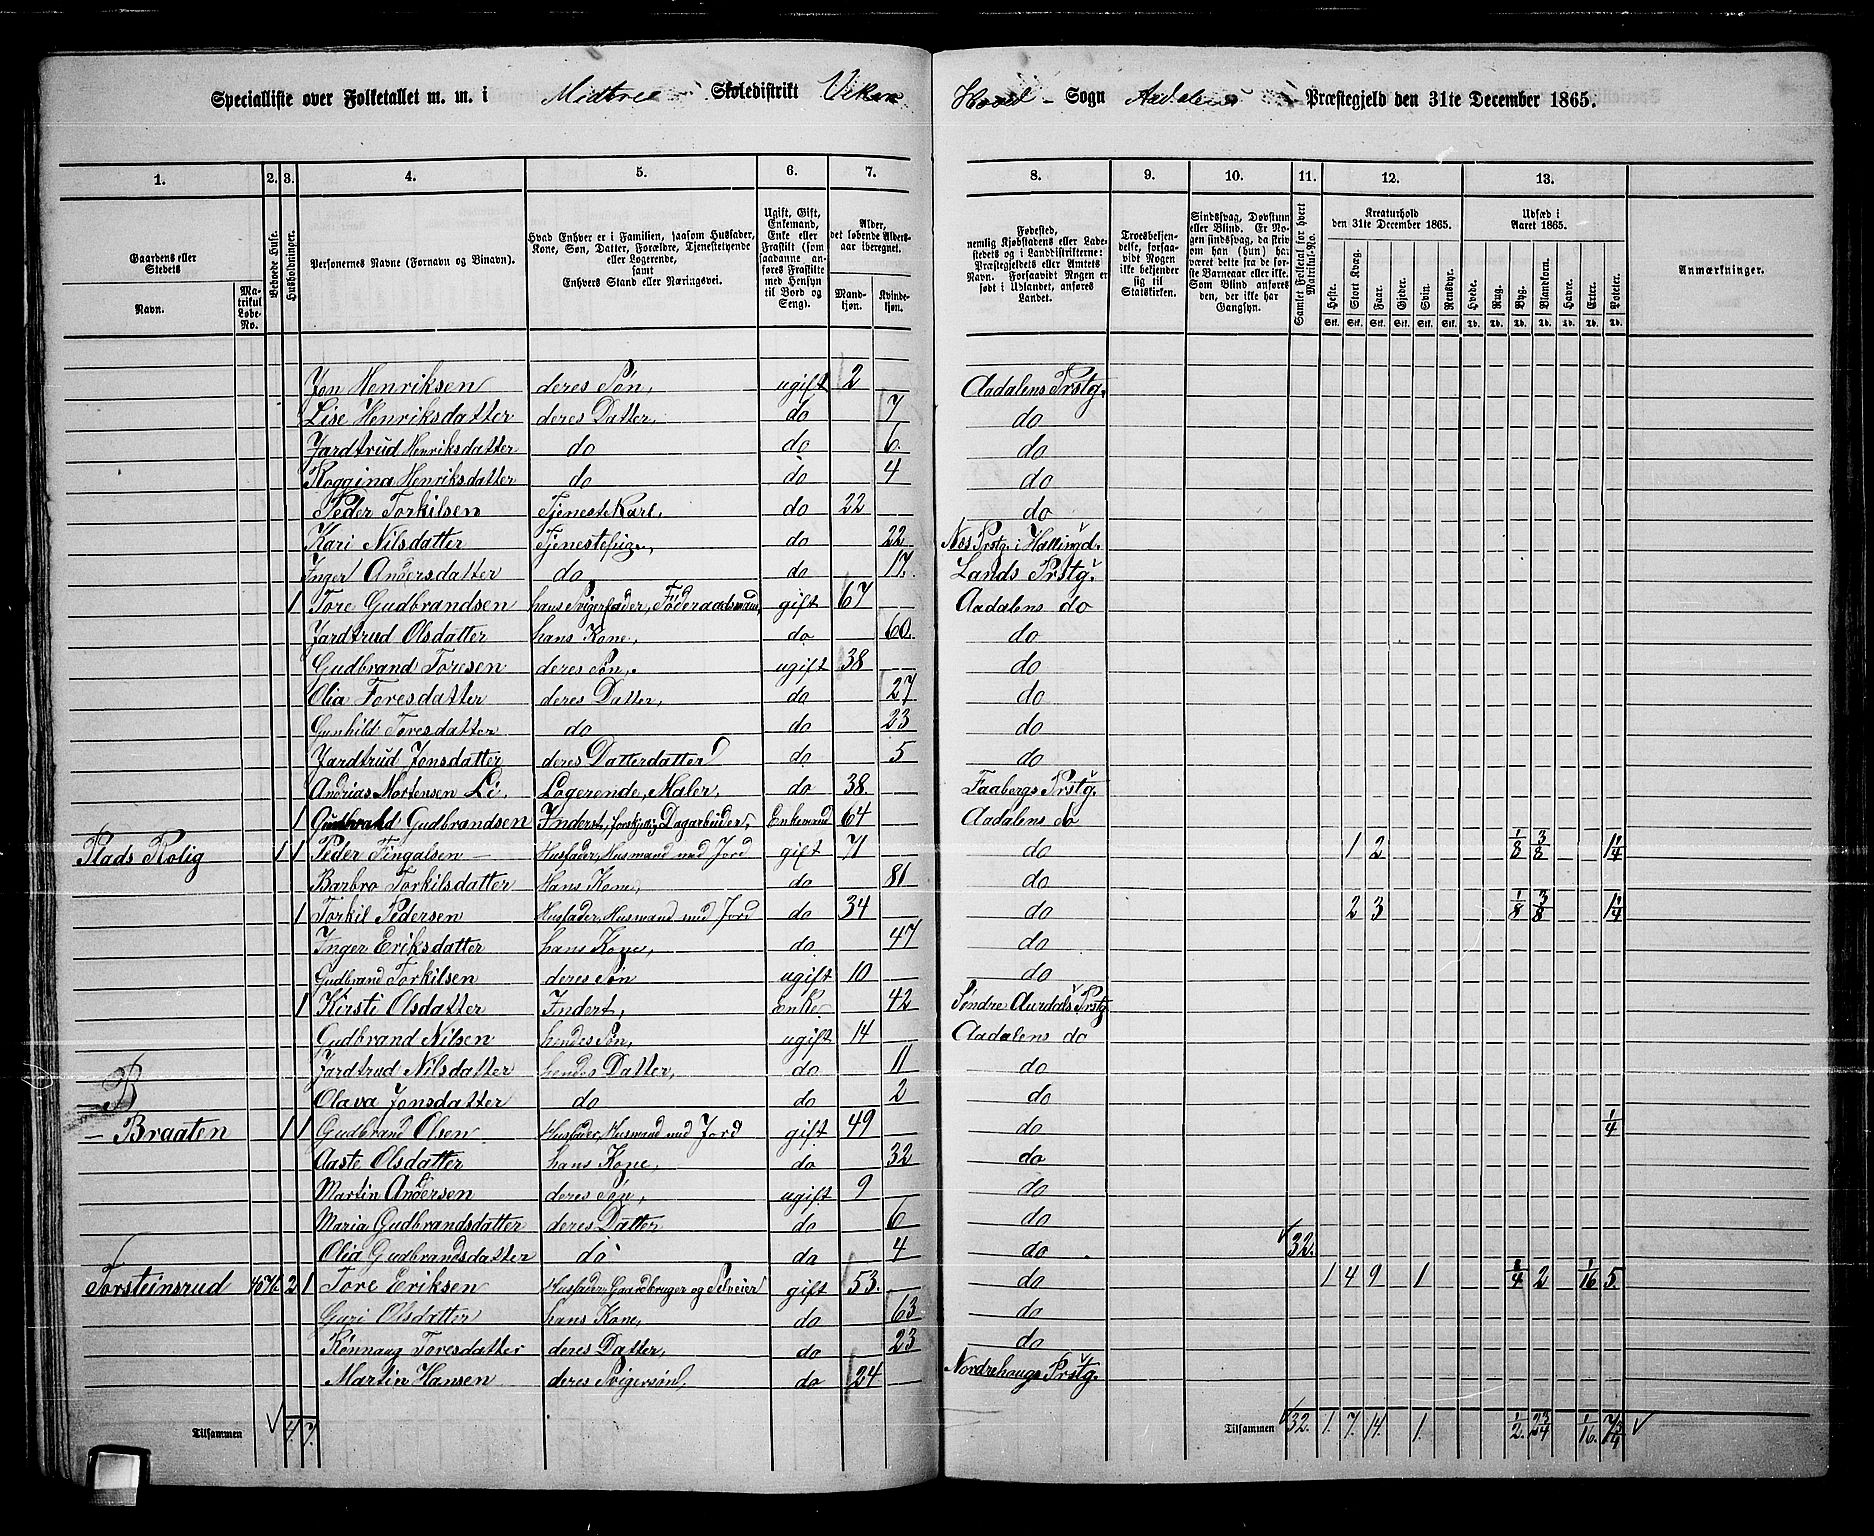 Specialliste over Folketallet m. m. i Midtre Skoledistrikt Viker Hoved Sogn Aadalens Præstegjeld den 31te December 1865.
1. 2. 3. 4. 5. 6. 7. 8. 9. 10. 11. 12. 13.
Gaardens eller Stedets
Navn.
Matrikul Løbe-No.
Beboede Huse.
Husholdninger.
Personernes Navne (Fornavn og Binavn).
Hvad Enhver er i Familien, saasom Husfader, Kone, Søn, Datter, Forældre, Tjenestetyende eller Logerende, samt Enhvers Stand eller Næringsvei.
Ugift, Gift, Enkemand, Enke eller Fraskilt (som saadanne anføres Fraskilte med Hensyn til Bord og Seng).
Alder, det løbende Aldersaar iberegnet.
Mandkjøn. Kvindekjøn.
Fødested, nemlig Kjøbstadens eller Ladestedets og i Landdistrikterne: Præstegjeldets eller Amtets Navn. Forsaavidt Nogen er født i Udlandet, anføres Landet.
Troesbekjendelse, forsaavidt Nogen ikke bekjender sig til Statskirken.
Sindssvag, Døvstum eller Blind. Er Nogen sindssvag, da skriv om han (hun) har været dette fra de første Barneaar eller ikke. Som Blind anføres den, der ikke har Gangsyn.
Samlet Folketal for hvert Matrikul-No.
Kreaturhold den 31te December 1865.
Heste. Stort Kvæg. Faar. Gjeder. Svin. Rensdyr.
Udsæd i Aaret 1865.
Hvede. Rug. Byg. Blandkorn. Havre. Erter. Poteter.
Anmærkninger.
Jon Henriksen deres Søn, ugift 2 Aadalens Prstg.
Lise Henriksdatter deres Datter, do 7 do
Jardtrud Henriksdatter do do 6 do
Roggina Henriksdatter do do 4 do
Peder Torkilsen Tjenestekarl, do 22 do
Kari Nilsdatter Tjenestepige, do 22 Nes Prstg. i Hallingd.
Inger Andersdatter do do 17. Lands Prstg.
1 Tore Gudbrandsen hans Svigerfader, Føderaadsmand, gift 67 Aadalens do
Jardtrud Olsdatter hans Kone, do 60. do
Gudbrand Toresen deres Søn, ugift 38 do
Olia Toresdatter deres Datter, do 27 do
Gunhild Toresdatter do do 23 do
Jardtrud Jonsdatter deres Datterdatter do 5 do
Andrias Mortensen Li, Logerende, Maler, do 38. Faabergs Prstg.
1 Gudbrand Gudbrandsen Inderst, Dagarbeider, Enkemand 64 Aadalens do
Plads Rolig 1 1 Peder Fingalsen Husfader, Husmand med Jord gift 71 do 1 2 1/8 3/8 1 1/4
Barbro Torkilsdatter Hans Kone, do 81 do
1 Torkil Pedersen Husfader, Husmand med Jord do 34 do 2 3 1/8 3/8 1 1/4
Inger Eriksdatter hans Kone, do 47 do
Gudbrand Torkilsen deres Søn ugift 10 do
1 Kirsti Olsdatter Inderst, Enke 42 Søndre Aurdals Prstg
Gudbrand Nilsen hendes Søn, ugift 14 Aadalens do
Jardtrud Nilsdatter hendes Datter, do 11 do
B Olava Jonsdatter do do 2 do
- Braaten 1 1 Gudbrand Olsen Husfader, Husmand med Jord gift 49 do 1/4
Aaste Olsdatter hans Kone, do 32 do
Martin Andersen deres Søn, ugift 9 do
Maria Gudbrandsdatter deres Datter do 6 do
Olia Gudbrandsdatter do do 4 do 32.
Torsteinsrud 2 1 Tore Eriksen Husfader, Gaardbruger og Selveier gift 53. do 1 4 9 1 1/4 2 1/16 5
Guri Olsdatter hans Kone, do 63 do
Rønnaug Toresdatter deres Datter, do 23 do
Martin Hansen deres Svigersøn, do 24 Nordrehougs Prstg.
Tilsammen 4. 7. Tilsammen 32. 1. 7. 14. 1. 1/2. 2 3/4 1/16. 7 3/4